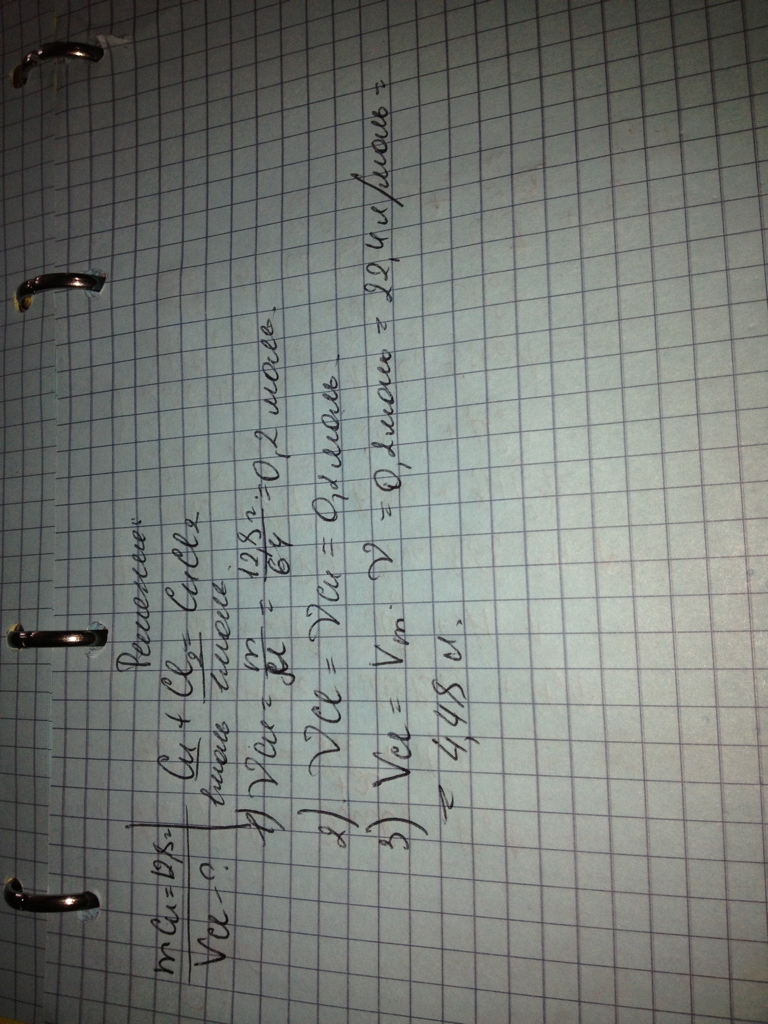 Решение
mCu = 12,8 г
VCl - ?
Cu + Cl₂ = CuCl₂
1моль 1моль
1) νCu = m/M = 12,8 г./64 = 0,2 моль.
2) νCl = νCu = 0,2 моль.
3) VCl = Vm · ν = 0,2 моль = 22,4 л/моль =
= 4,48 л.